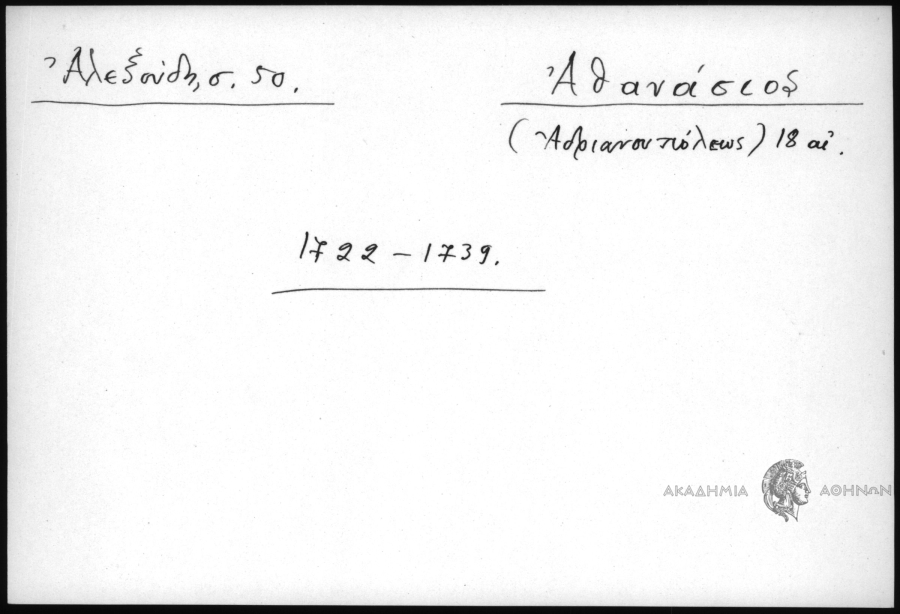 Ἀλεξούδη, σ. 50.
Ἀθανάσιος
(Ἀδριανουπόλεως) 18 αἰ.
1722 – 1739.
ΑΚΑΔΗΜΙΑ ΑΘΗΝΩΝ